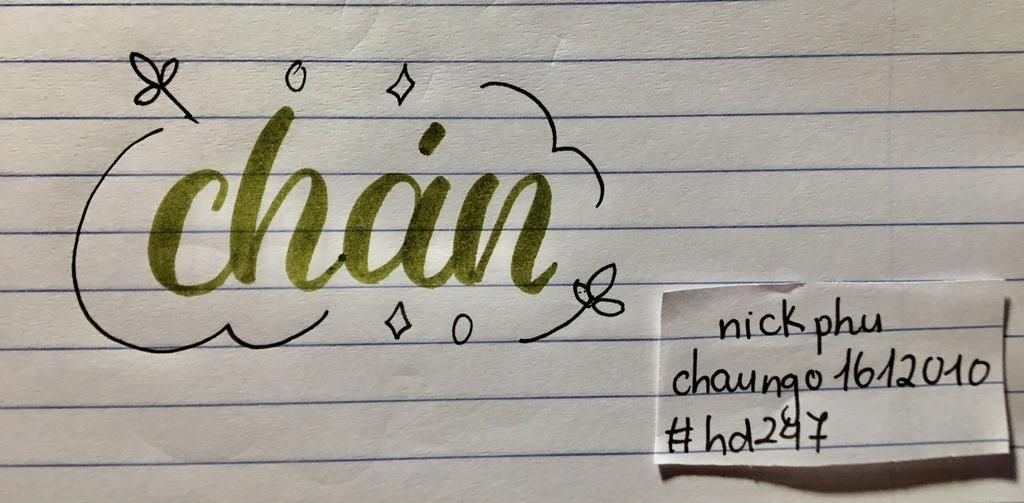 chán
nick phu
chaungo1612010
#hd247